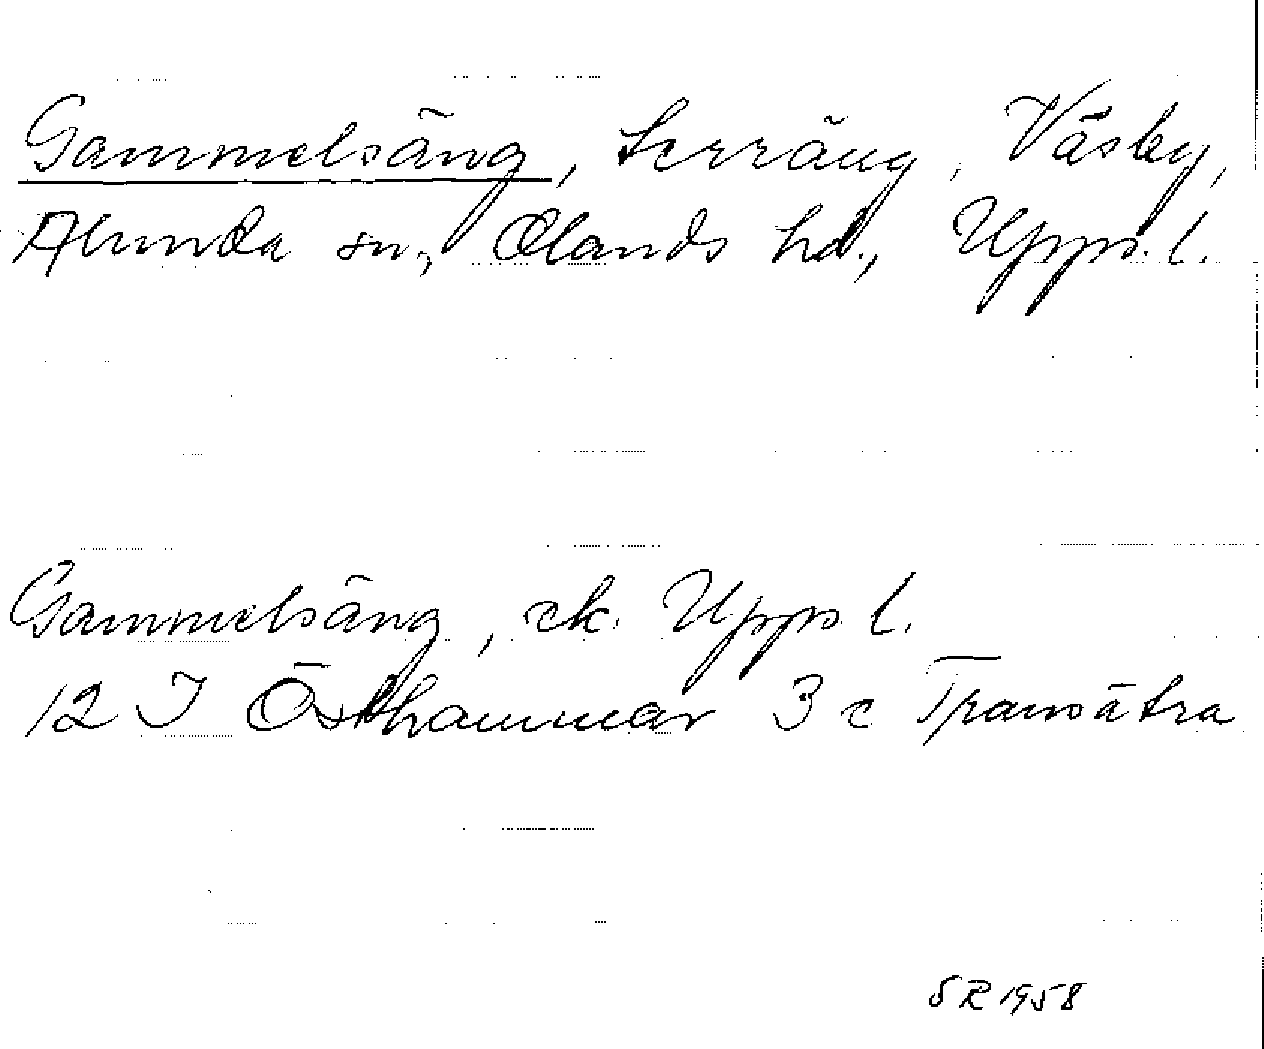 Gammelsäng, terräng, Väsby,
Alunda sn, Olands hd., Uppsl.
Gammelsäng, ek. Uppsl.
12 I Östhammar 3 c Pransätra
SR 1958